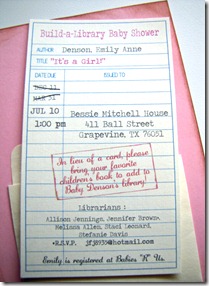 Build-a-Library Baby Shower
AUTHOR Denson, Emily Anne
TITLE "It's a Girl!"
DATE DUE ISSUED TO
DEC 11
MAR 31
JUL 10 Bessie Mitchell House
1:00 pm 411 Ball Street
Grapevine, TX 76051
In lieu of a card, please
bring your favorite
children's book to add to
Baby Denson's library!
Librarians:
Allison Jennings, Jennifer Brown,
Melissa Allen, Staci Leonard,
Stefanie Davis
•R.S.V.P. @hotmail.com
Emily is registered at Babies "R" Us.